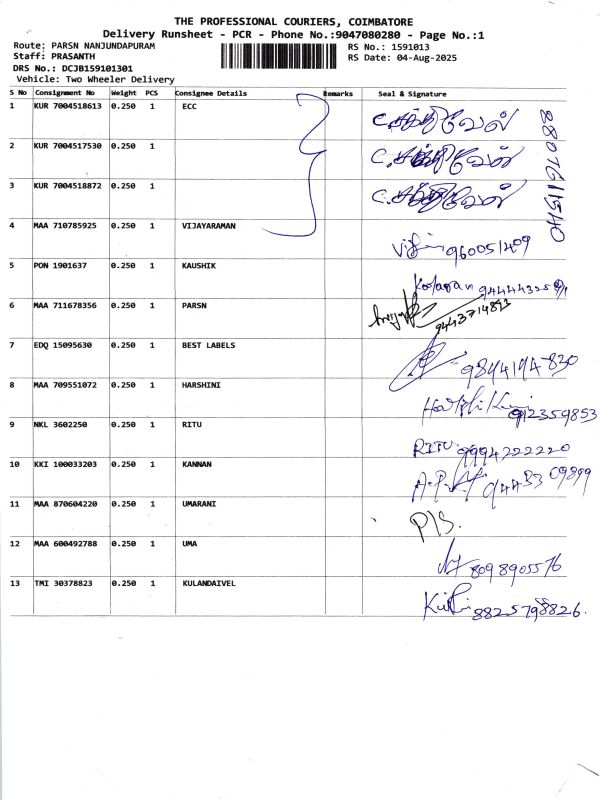 THE PROFESSIONAL COURIERS, COIMBATORE
Delivery Runsheet - PCR - Phone No.:9047080280 - Page No.:1
Route: PARSN NANJUNDAPURAM
RS No.: 1591013
Staff: PRASANTH
RS Date: 04-Aug-2025
DRS No.: DCJB159101301
Vehicle: Two Wheeler Delivery
S No Consignment No Weight PCS Consignee Details Remarks Seal & Signature
1 KUR 7004518613 0.250 1 ECC
2 KUR 7004517530 0.250 1
3 KUR 7004518872 0.250 1
8807611540
4 MAA 710785925 0.250 1 VIJAYARAMAN
5 PON 1901637 0.250 1 KAUSHIK
6 MAA 711678356 0.250 1 PARSN
7 EDQ 15095630 0.250 1 BEST LABELS 9844194830
8 MAA 709551072 0.250 1 HARSHINI
9 NKL 3602250 0.250 1 RITU RITU 9994222220
10 KKI 100033203 0.250 1 KANNAN
11 MAA 870604220 0.250 1 UMARANI P/S.
12 MAA 600492788 0.250 1 UMA 8098905576
13 TMI 30378823 0.250 1 KULANDAIVEL 8825798826.